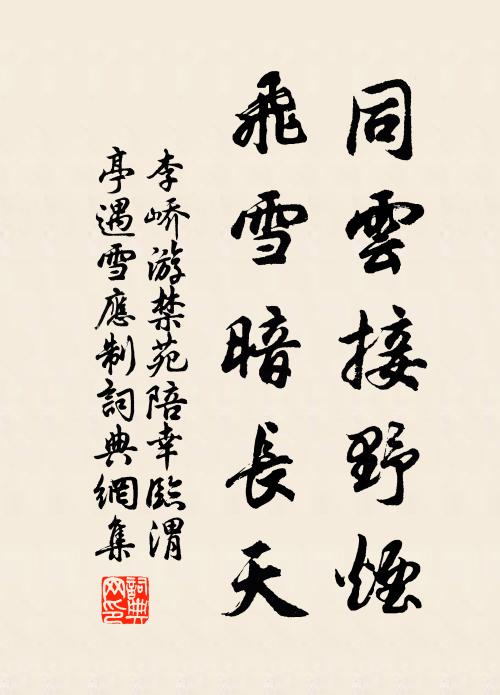 同雲接野煙
飛雪暗長天
李嶠游禁苑陪幸臨渭
亭遇雪應制詞典網集
詞典網印